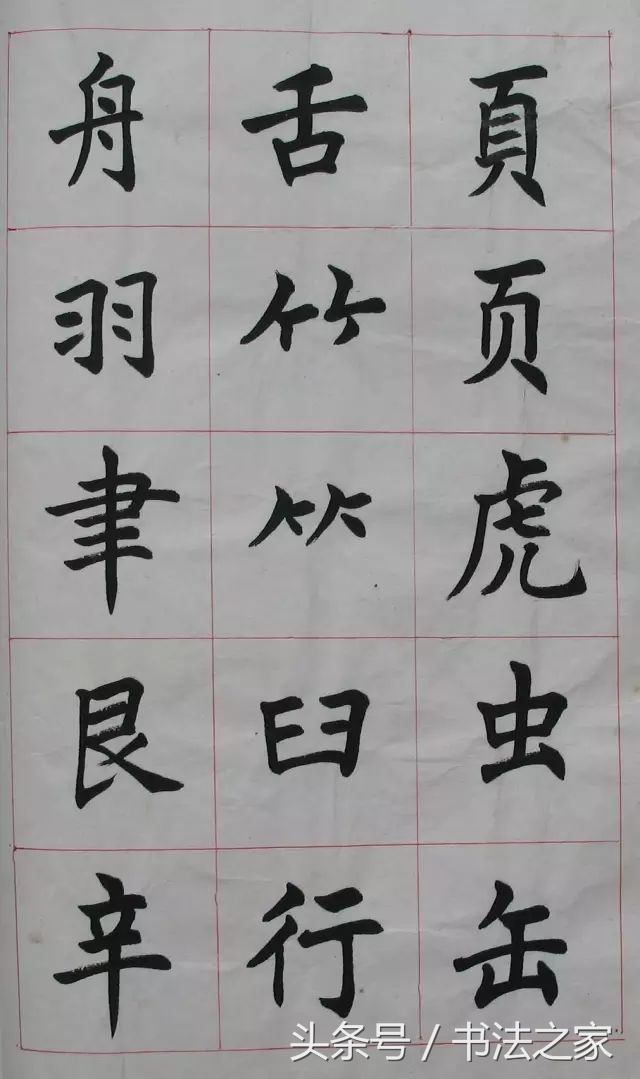 頁页虎虫缶
舌竹⺮臼行
舟羽聿艮辛
头条号 / 书法之家